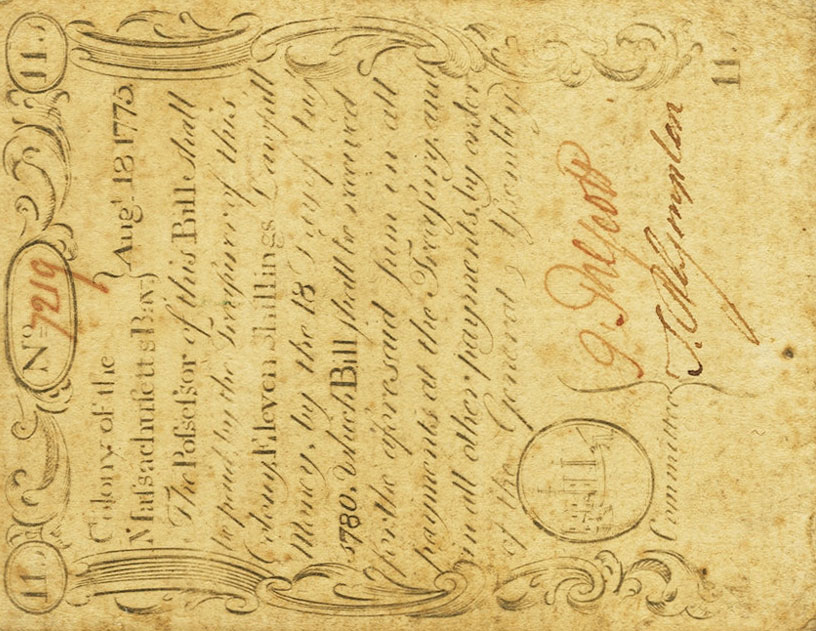 11.s
No 7219
11.s
Colony of the
Massachusetts Bay } Augt. 18 1775.
The Possessor of this Bill shall
be paid, by the Treasurer of this
Colony, Eleven Shillings Lawfull
Money, by the 18
1780. Which Bill shall be received
for the aforesaid sum in all
payments at the Treasury, and
in all other payments, by order
of the General Assembly.
Committee {
11.s